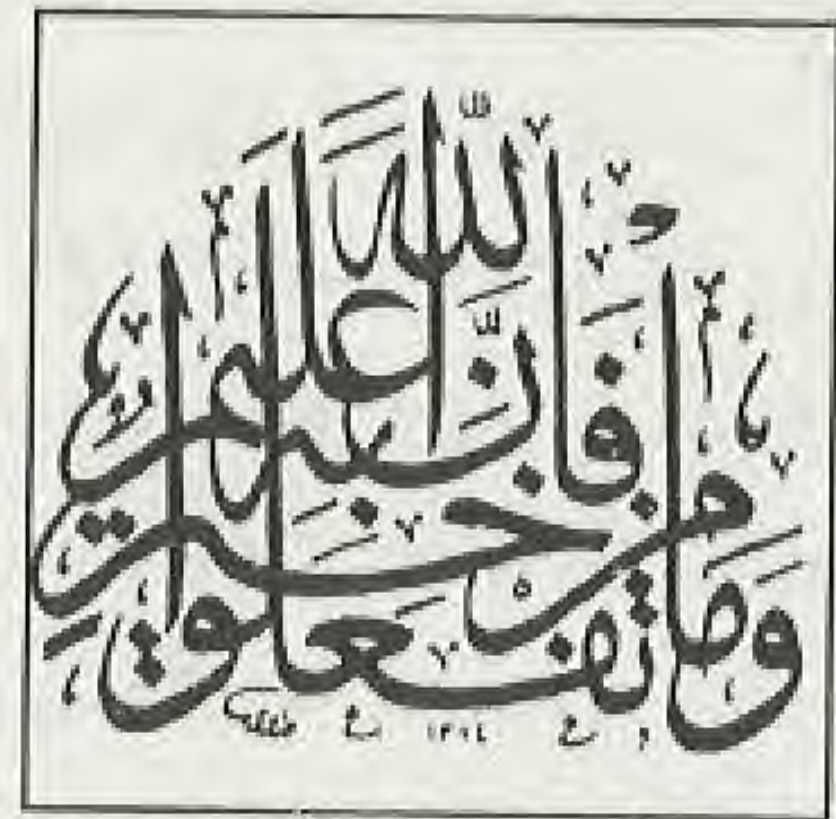 وَمَا تَفْعَلُوا مِنْ خَيْرٍ فَإِنَّ اللَّهَ بِهِ عَلِيمٌ